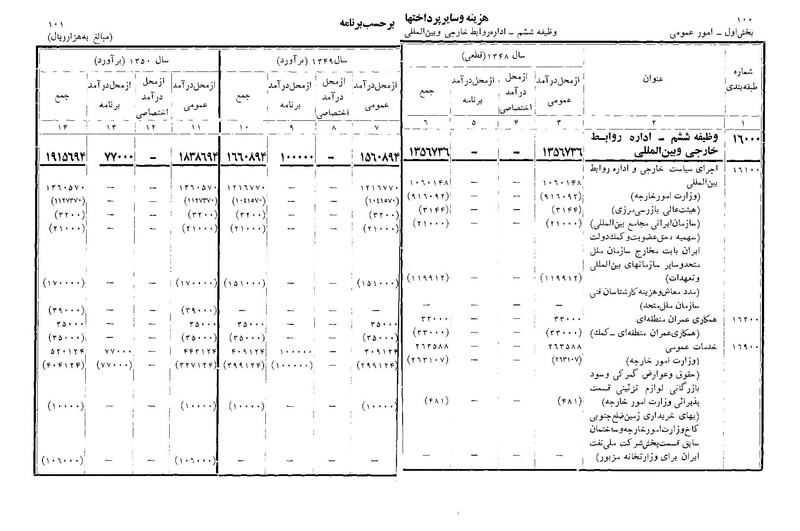 ۱۰۰
هزینه وسایر پرداختها
برحسب برنامه
۱۰۱
بخش اول ــ امور عمومی
وظیفه ششم ــ اداره روابط خارجی وبین‌المللی
(مبالغ به‌هزار ریال)
شماره طبقه‌بندی
عنوان
سال ۱۳۴۸ (قطعی)
سال ۱۳۴۹ (برآورد)
سال ۱۳۵۰ (برآورد)
از محل درآمد عمومی
از محل درآمد اختصاصی
از محل درآمد برنامه
جمع
از محل درآمد عمومی
از محل درآمد اختصاصی
از محل درآمد برنامه
جمع
از محل درآمد عمومی
از محل درآمد اختصاصی
از محل درآمد برنامه
جمع
۱ ۲ ۳ ۴ ۵ ۶ ۷ ۸ ۹ ۱۰ ۱۱ ۱۲ ۱۳ ۱۴
۱۶۰۰۰ وظیفه ششم ــ اداره روابط
خارجی وبین‌المللی ۱۳۵۶۷۳۶ – – ۱۳۵۶۷۳۶ ۱۵۶۰۸۹۴ – ۱۰۰۰۰۰ ۱۶۶۰۸۹۴ ۱۸۳۸۶۹۴ – ۷۷۰۰۰ ۱۹۱۵۶۹۴
۱۶۱۰۰ اجرای سیاست خارجی و اداره روابط
بین‌المللی ۱۰۶۰۱۴۸ – – ۱۰۶۰۱۴۸ ۱۲۱۶۷۷۰ – – ۱۲۱۶۷۷۰ ۱۳۶۰۵۷۰ – – ۱۳۶۰۵۷۰
(وزارت امورخارجه) (۹۱۶۰۹۲) – – (۹۱۶۰۹۲) (۱۰۴۱۵۷۰) – – (۱۰۴۱۵۷۰) (۱۱۲۷۳۷۰) – – (۱۱۲۷۳۷۰)
(هیئت‌عالی بازرسی‌مرزی) (۳۱۴۴) – – (۳۱۴۴) (۳۲۰۰) – – (۳۲۰۰) (۳۲۰۰) – – (۳۲۰۰)
(سازمان‌ایرانی مجامع بین‌المللی) (۲۱۰۰۰) – – (۲۱۰۰۰) (۲۱۰۰۰) – – (۲۱۰۰۰) (۲۱۰۰۰) – – (۲۱۰۰۰)
(سهمیه ، حق‌عضویت و کمك دولت
ایران بابت مخارج سازمان ملل
متحد وسایر سازمانهای بین‌المللی
وتعهدات) (۱۱۹۹۱۲) – – (۱۱۹۹۱۲) (۱۵۱۰۰۰) – – (۱۵۱۰۰۰) (۱۷۰۰۰۰) – – (۱۷۰۰۰۰)
(مدد معاش وهزینه کارشناسان فنی
سازمان ملل متحد) – – – – – – – – (۳۹۰۰۰) – – (۳۹۰۰۰)
۱۶۲۰۰ همکاری عمران منطقه‌ای ۳۳۰۰۰ – – ۳۳۰۰۰ ۳۵۰۰۰ – – ۳۵۰۰۰ ۳۵۰۰۰ – – ۳۵۰۰۰
(همکاری‌عمران منطقه‌ای ــ کمك) (۳۳۰۰۰) – – (۳۳۰۰۰) (۳۵۰۰۰) – – (۳۵۰۰۰) (۳۵۰۰۰) – – (۳۵۰۰۰)
۱۶۹۰۰ خدمات عمومی ۲۶۳۵۸۸ – – ۲۶۳۵۸۸ ۳۰۹۱۲۴ – ۱۰۰۰۰۰ ۴۰۹۱۲۴ ۴۴۳۱۲۴ – ۷۷۰۰۰ ۵۲۰۱۲۴
(وزارت امور خارجه) (۲۶۳۱۰۷) – – (۲۶۳۱۰۷) (۲۹۹۱۲۴) – (۱۰۰۰۰۰) (۳۹۹۱۲۴) (۳۲۷۱۲۴) – (۷۷۰۰۰) (۴۰۴۱۲۴)
(حقوق وعوارض گمرکی وسود
بازرگانی لوازم تزئینی قسمت
پذیرائی وزارت امور خارجه) (۴۸۱) – – (۴۸۱) (۱۰۰۰۰) – – (۱۰۰۰۰) (۱۰۰۰۰) – – (۱۰۰۰۰)
(بهای خریداری زمین‌ضلع‌جنوبی
کاخ وزارت امورخارجه وساختمان
سابق قسمت‌پخش شرکت ملی‌نفت
ایران برای وزارتخانه مزبور) – – – – – – – – (۱۰۶۰۰۰) – – (۱۰۶۰۰۰)